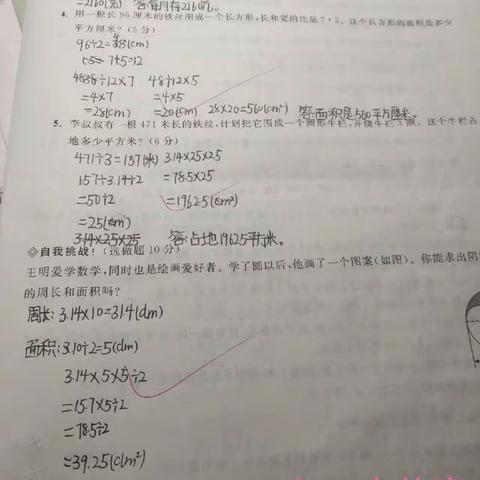 =2160(元) 答:每月存2160元。
4. 用一根长 96 厘米的铁丝围成一个长方形,长和宽的比是 7:5。这个长方形的面积是多少
平方厘米?(5 分)
96÷2=48(cm)
7+5=12
48÷12×7 48÷12×5
=4×7 =4×5
=28(cm) =20(cm) 28×20=560(cm²) 答:面积是560平方厘米。
5. 李叔叔有一根 471 米长的铁丝,计划把它围成一个圆形牛栏,并绕牛栏 3 圈。这个牛栏占
地多少平方米?(6 分)
471÷3=157(米) 3.14×25×25
157÷3.14÷2 =78.5×25
=50÷2 =1962.5(m²)
=25(m)
3.14×25×25 答:占地1962.5平方米。
◇自我挑战!(选做题 10 分)
王明爱学数学,同时也是绘画爱好者。学了圆以后,他画了一个图案(如图)。你能求出阴
的周长和面积吗?
周长:3.14×10=31.4(dm)
面积:10÷2=5(dm)
3.14×5×5÷2
=15.7×5÷2
=78.5÷2
=39.25(dm²)